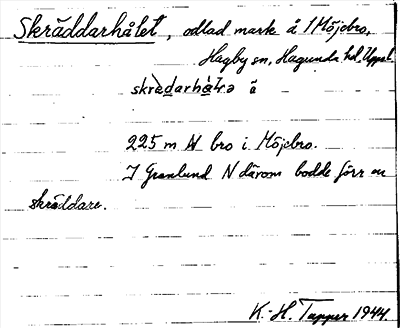 Skräddarhålet, odlad mark å 1 Möjebro,
Hagby sn, Hagunda hd, Uppl.
skrèdarhå̀lə ã
225 m N bro i Möjebro.
I Granlund N därom bodde förr en
skräddare.
K.-H. Tapper 1944.